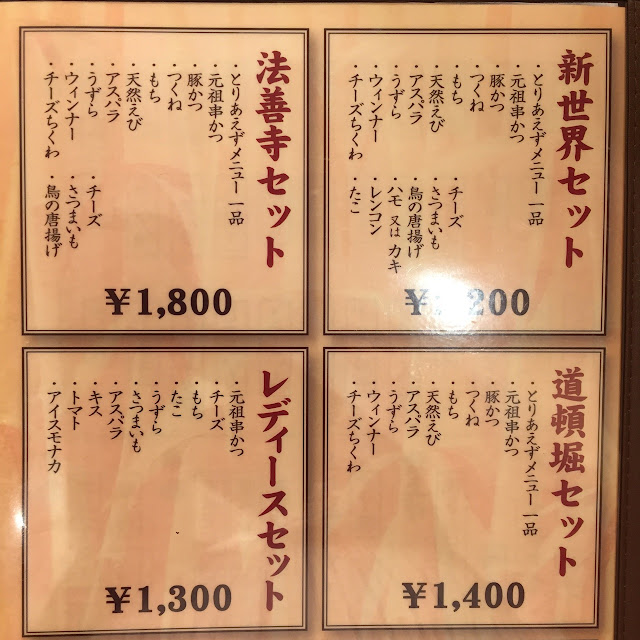 新世界セット
・とりあえずメニュー一品
・元祖串かつ
・豚かつ
・つくね
・もち
・天然えび
・アスパラ
・うずら
・ウィンナー
・チーズちくわ
・チーズ
・さつまいも
・鳥の唐揚げ
・ハモ 又は カキ
・レンコン
・たこ
200
法善寺セット
・とりあえずメニュー 一品
・元祖串かつ
・豚かつ
・つくね
・もち
・天然えび
・アスパラ
・うずら
・ウィンナー
・チーズちくわ
・チーズ
・さつまいも
・鳥の唐揚げ
￥1,800
道頓堀セット
・とりあえずメニュー 一品
・元祖串かつ
・豚かつ
・つくね
・もち
・天然えび
・アスパラ
・うずら
・ウィンナー
・チーズちくわ
￥1,400
レディースセット
・元祖串かつ
・チーズ
・もち
・たこ
・うずら
・さつまいも
・アスパラ
・キス
・トマト
・アイスモナカ
￥1,300